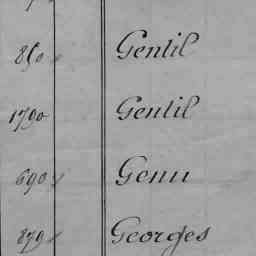 850 Gentil
1790 Gentil
690 Genu
879 Georges